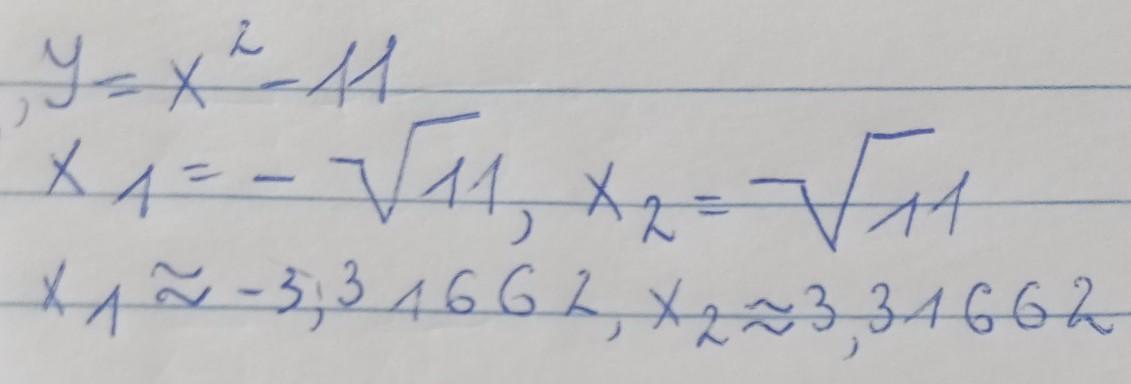 , y = x² - 11
x₁ = - √11, x₂ = √11
x₁ ≈ -3,31662, x₂ ≈ 3,31662